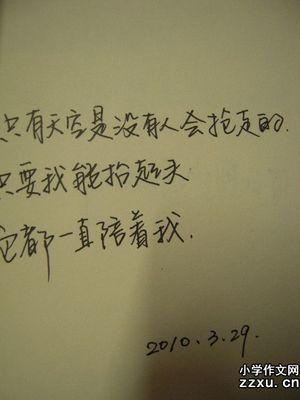 只有天空是没有人会抢走的.
只要我能抬起头
它都一直陪着我.
2010.3.29.
小学作文网
zzxu.cn